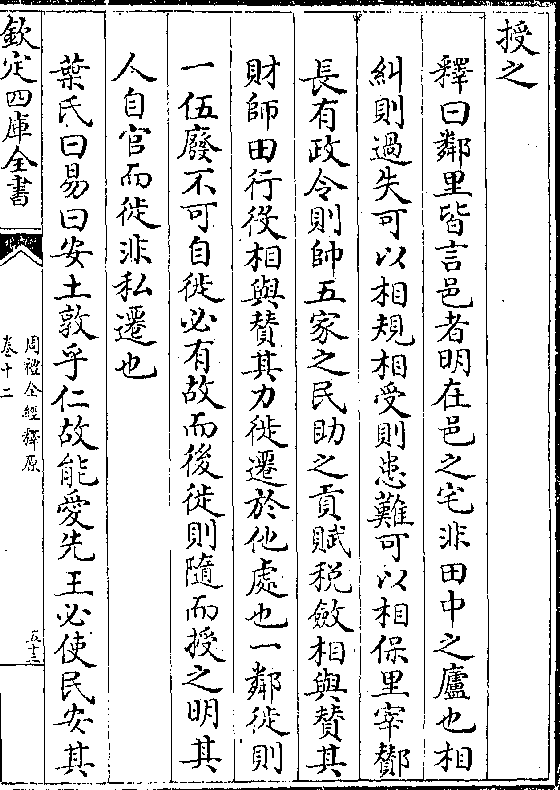 授之
釋曰鄰里皆言邑者明在邑之宅非田中之廬也相
糾則過失可以相規相受則患難可以相保里宰鄼
長有政令則帥五家之民助之貢賦税斂相與賛其
財師田行役相與賛其力徙遷於他處也一鄰徙則
一伍廢不可自徙必有故而後徙則隨而授之明其
人自官而徙非私遷也
葉氏曰易曰安土敦乎仁故能愛先王必使民安其
欽定四庫全書
周禮全經釋原
卷十二
五十三